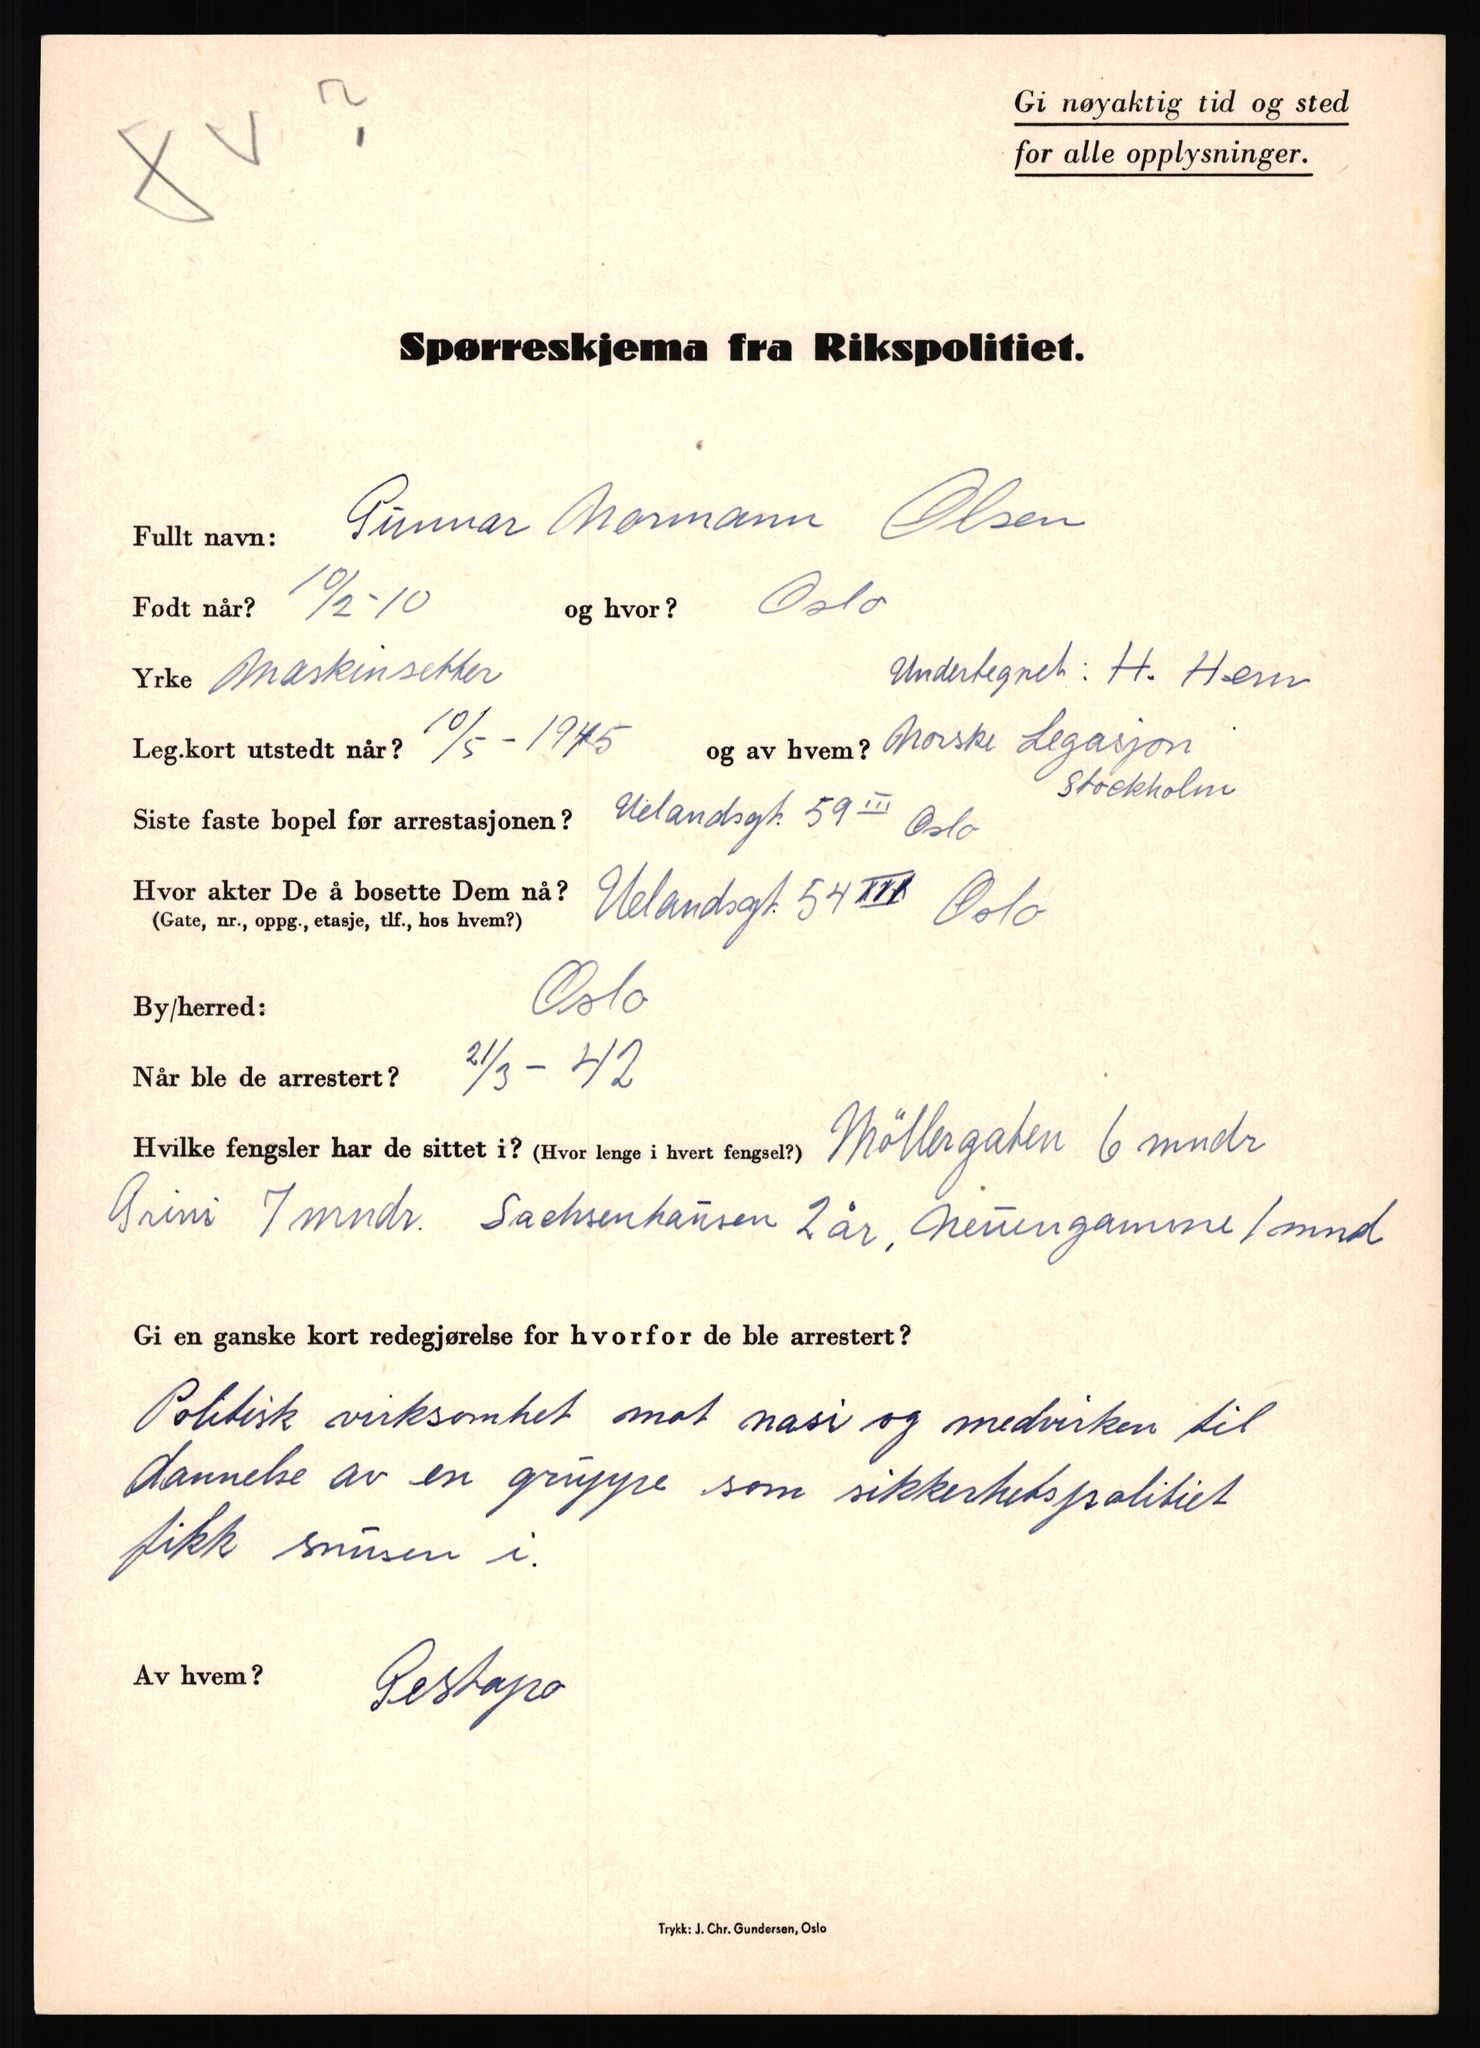 V ?
Gi nøyaktig tid og sted
for alle opplysninger.
Spørreskjema fra Rikspolitiet.
Fullt navn: Gunnar Normann Olsen
Født når? 10/2-10 og hvor? Oslo
Yrke Maskinsetter Undertegnet: H. Hem
Leg.kort utstedt når? 10/5-1945 og av hvem? Norske Legasjon
Stockholm
Siste faste bopel før arrestasjonen? Uelandsgt. 59 III Oslo
Hvor akter De å bosette Dem nå? Uelandsgt. 54 III Oslo
(Gate, nr., oppg., etasje, tlf., hos hvem?)
By/herred: Oslo
Når ble de arrestert? 21/3 - 42
Hvilke fengsler har de sittet i? (Hvor lenge i hvert fengsel?) Möllergaten 6 mndr
Grini 7 mndr. Sachsenhausen 2 år, Neuengamme 1 mnd
Gi en ganske kort redegjørelse for hvorfor de ble arrestert?
Politisk virksomhet mot nasi og medvirken til
dannelse av en gruppe som sikkerhetspolitiet
fikk snusen i.
Av hvem? Gestapo
Trykk: J. Chr. Gundersen, Oslo